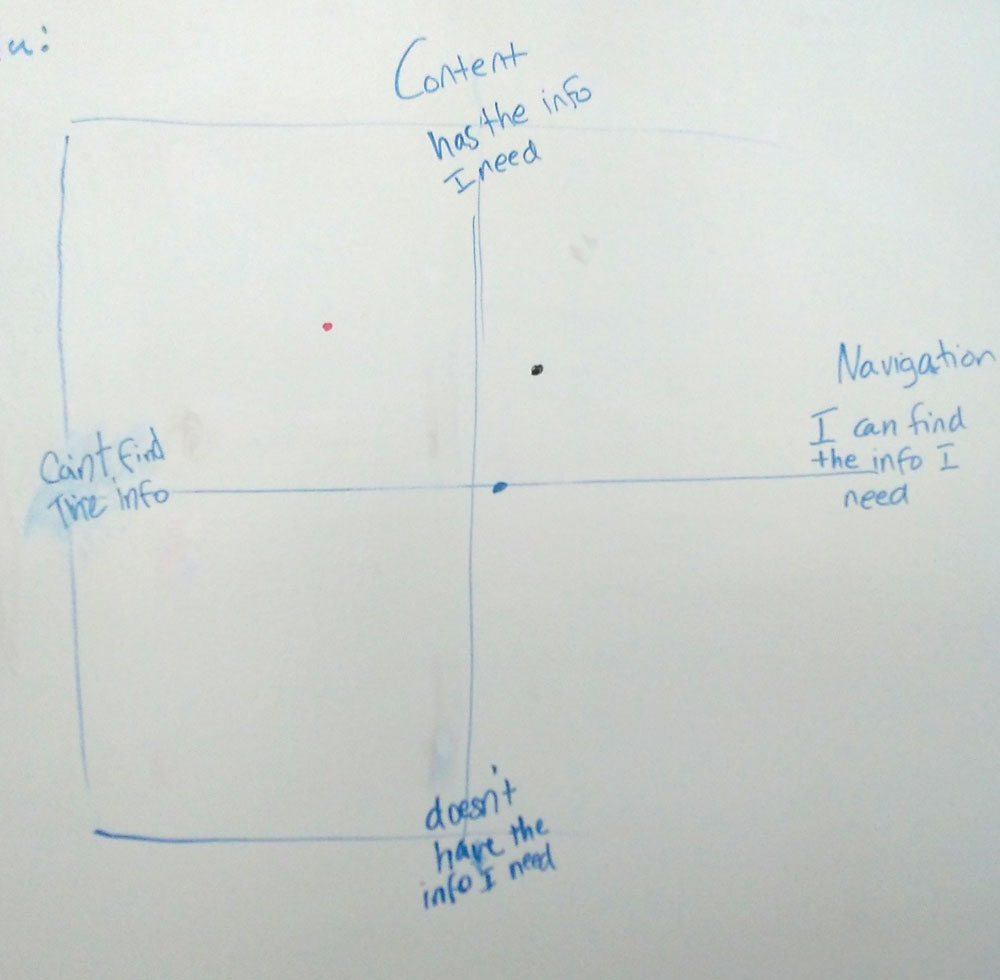 u:
Content
has the info
I need
Navigation
I can find
the info I
need
Can't find
The info
doesn't
have the
info I need